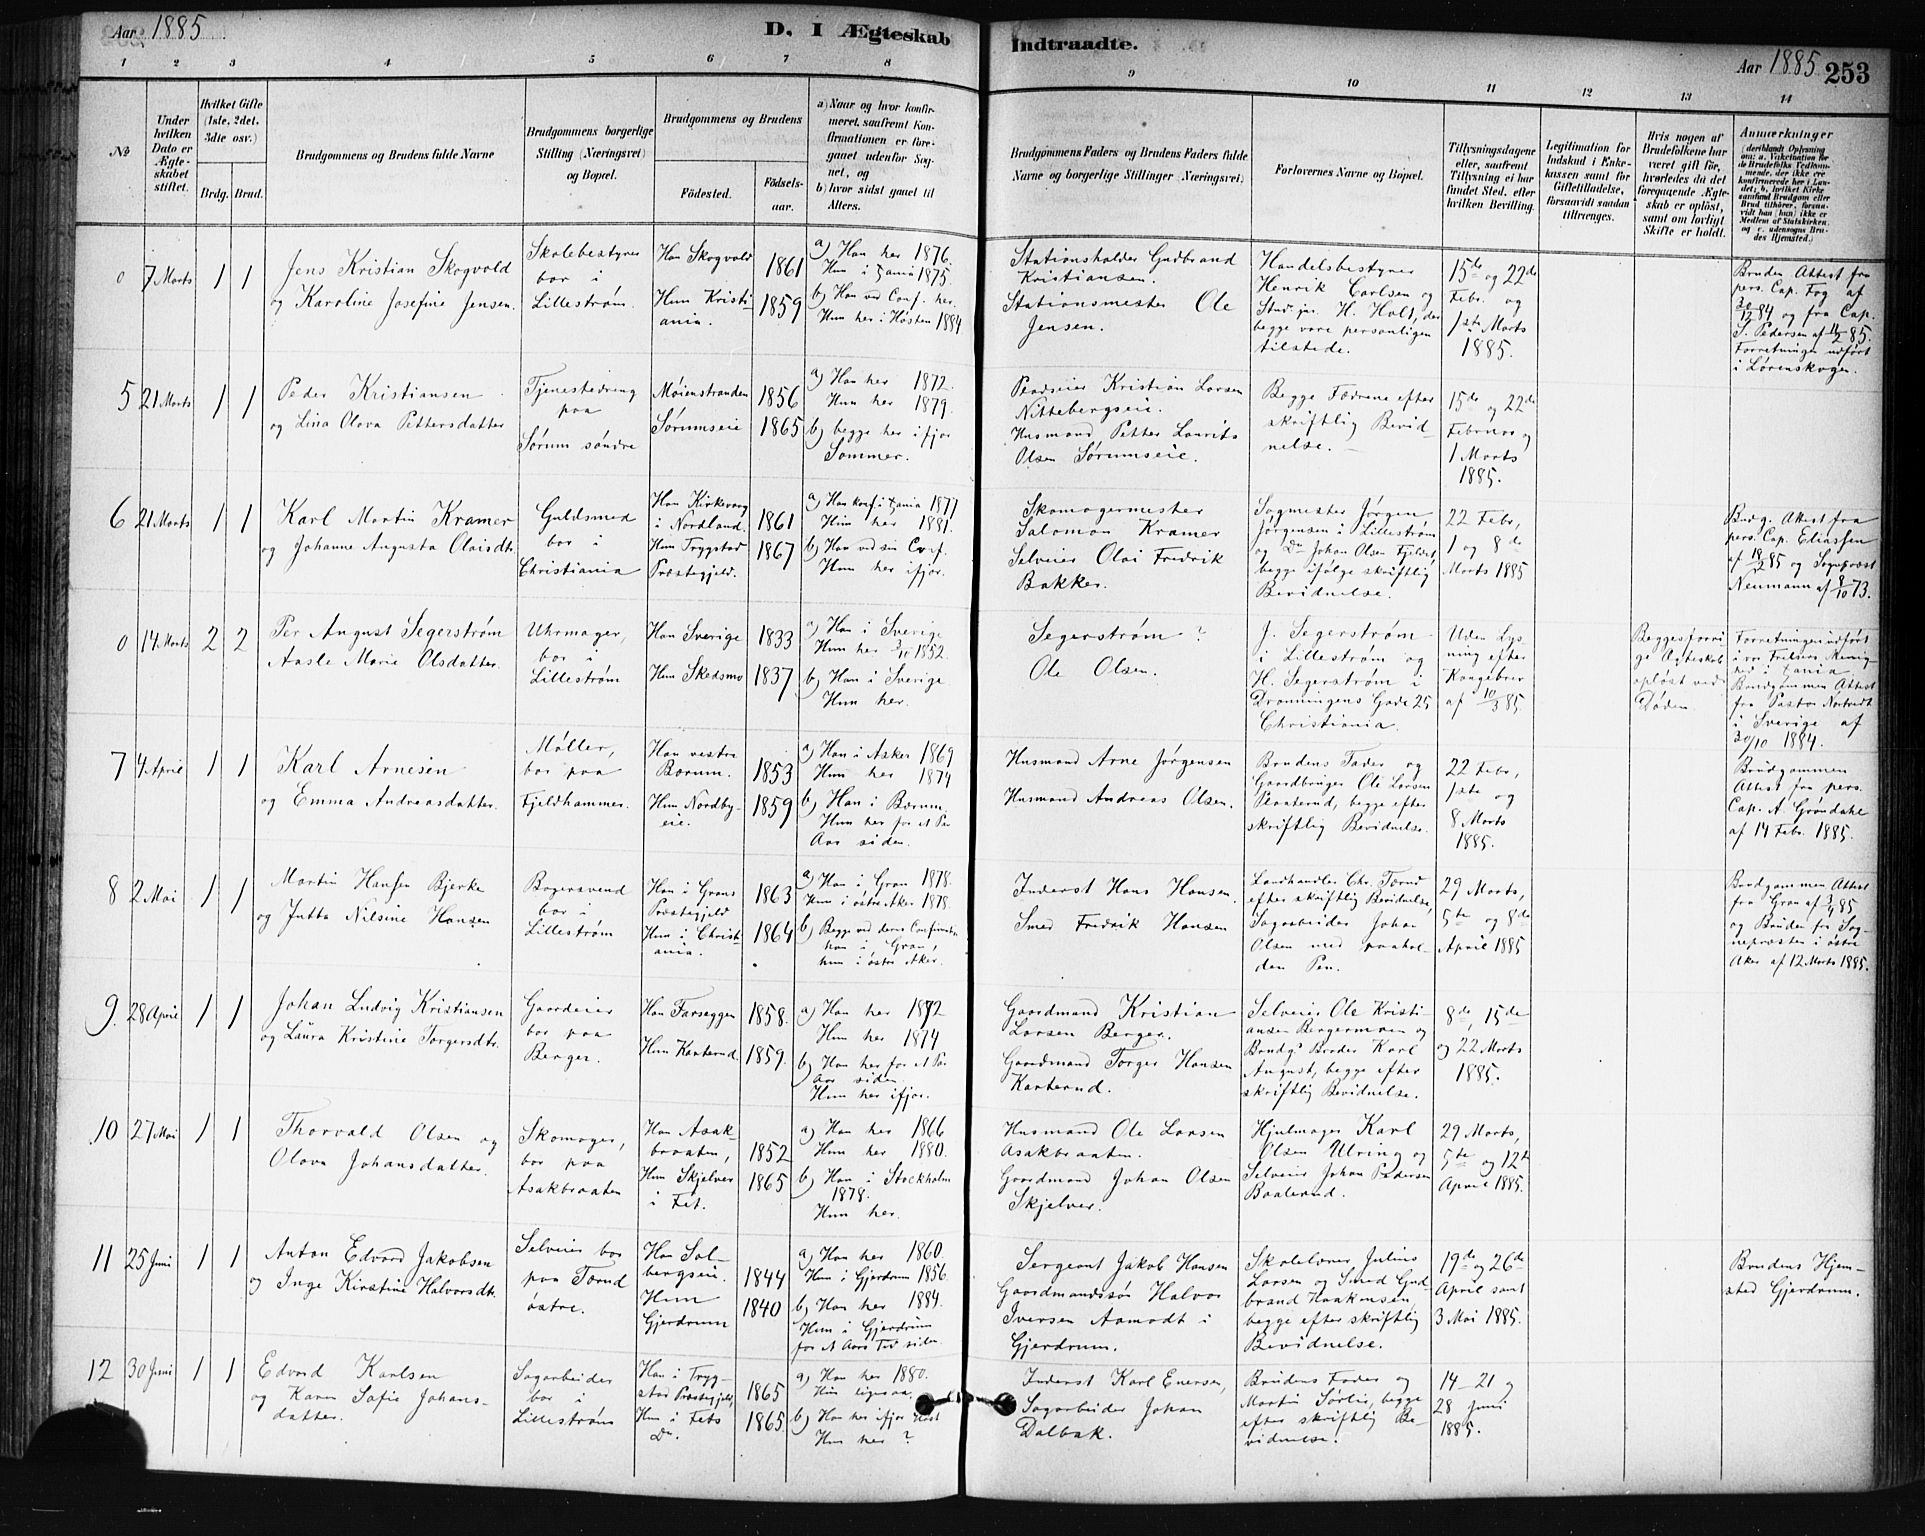 Aar 1885
D. I Ægteskab
Indtraadte.
Aar 1885
253
1 2 3 4 5 6 7 8
9 10 11 12 13 14
№
Under hvilken Dato er Ægteskabet stiftet.
Hvilket Gifte (1ste, 2det, 3die osv.)
Brdg. Brud.
Brudgommens og Brudens fulde Navne
Brudgommens borgerlige Stilling (Næringsvei) og Bopæl.
Brudgommens og Brudens
Fødested.
Fødselsaar.
a) Naar og hvor konfirmeret, saafremt Konfirmationen er foregaaet udenfor Sognet, og
b) hvor sidst gaaet til Alters.
Brudgommens Faders og Brudens Faders fulde Navne og borgerlige Stillinger (Næringsvei)
Forlovernes Navne og Bopæl.
Tillysningsdagene eller, saafremt Tillysning ei har fundet Sted, efter hvilken Bevilling.
Legitimation for Indskud i Enkekassen samt for Giftetilladelse, forsaavidt saadan tiltrænges.
Hvis nogen af Brudefolkene har været gift før, hvorledes da det foregaaende Ægteskab er opløst, samt om lovligt Skifte er holdt.
Anmærkninger
0 7 Marts 1 1
Jens Kristian Skogvold
og Karoline Josefine Jensen.
Skolebestyrer
bor i
Lillestrøm.
Han Skogvold 1861
Hun Kristiania. 1859
a) Han her 1876.
Hun i Xania 1875.
b) Han ved Conf. her.
Hun her i Høsten 1884
Stationsholder Gudbrand
Kristiansen.
Stationsmester Ole
Jensen.
Handelsbestyrer
Henrik Carlsen og
Stud. jur. H. Holt, der
begge vare personligen
tilstede.
15de og 22de
Febr. og
1ste Marts
1885.
Bruden Attest fra
pers. Cap. Fog af
30/12 84 og fra Cap.
S. Pedersen af 11/2 85.
Forretningen udført
i Lørenskogen.
5 21 Marts 1 1
Peder Kristiansen
og Lina Olava Pettersdatter
Tjenestedreng
paa
Sørum søndre
Møienstranden 1856
Sørumseie 1865
a) Han her 1872.
Hun her 1879.
b) begge her ifjor
Sommer.
Pladseier Kristian Larsen
Nittebergseie.
Husmand Petter Laurits
Olsen Sørumseie.
Begge Fædrene efter
skriftlig Bevidnelse.
15de og 22de
Februar og
1 Marts
1885.
6 21 Marts 1 1
Karl Martin Kramer
og Johanne Augusta Olaisdtr.
Guldsmed
bor i
Christiania
Han Kirkevaag
i Nordland. 1861
Hun Trygstad 1867
Præstegjeld.
a) Han konf. i Xania 1877
Hun her 1881.
b) Han ved sin Conf.
Hun her ifjor.
Skomagermester
Salomon Kramer
Selveier Olai Fredrik
Bakker.
Sagmester Jørgen
Jørgensen i Lillestrøm
og Do Johan Olsen Fjeldet,
begge ifølge skriftlig
Bevidnelse.
22 Febr,
1 og 8de
Marts 1885
Brudg. Attest fra
pers. Cap. Eliassen
af 18/2 85 og Sogneprest
Neumann af 8/10 73.
0 14 Marts 2 2
Per August Segerstrøm
Aasle Marie Olsdatter.
Uhrmager,
bor i
Lillestrøm
Han Sverige 1833
Hun Skedsmo 1837
a) Han i Sverige
Hun her 3/10 1852.
b) Han i Sverige
Hun her.
Segerstrøm ?
Ole Olsen.
J. Segerstrøm
i Lillestrøm og
H. Segerstrøm i
Dronningens Gade 25
Christiania.
Uden Lysning efter
Kongebrev
af 10/3 85.
Begges forrige Ægteskab
opløst ved
Døden.
Forretningen udført
i vor Frelsers Menighed i Xania.
Brudgommen Attest
fra Pastor
i Sverige af
30/10 1884.
7 4 April 1 1
Karl Arnesen
og Emma Andreasdatter.
Møller,
bor paa
Fjeldhammer.
Han vestre
Bærum. 1853
Hun Nordbyeie. 1859
a) Han i Asker 1869
Hun her 1874
b) Han i Bærum.
Hun her for et Par
Aar siden.
Husmand Arne Jørgensen
Husmand Andreas Olsen.
Brudens Fader og
Gaardbruger Ole Larsen
Flaaterud, begge efter
skriftlig Bevidnelse.
22 Febr,
1ste og
8 Marts
1885.
Brudgommen
Attest fra pers.
Cap. A Grøndahl
af 14 Febr. 1885.
8 2 Mai 1 1
Martin Hansen Bjerke
og Jutta Nilsine Hansen
Bagersvend
bor i
Lillestrøm
Han i Grans 1863
Præstegjeld
Hun i Christiania. 1864
a) Han i Gran 1878.
Hun i østre Aker 1878.
b) Begge ved deres Confirmation
han i Gran,
hun i østre Aker.
Inderst Hans Hansen.
Smed Fredrik Hansen
Landhandler Chr. Torud
efter skriftlig Bevidnelse,
Sagarbeider Johan
Olsen med paaholden Pen.
29 Marts,
5te og 8de
April 1885
Brudgommen Attest
fra Gran af 3/4 85
og Bruden fra Sognepresten i østre
Aker af 12 Marts 1885.
9. 28 April 1 1
Johan Ludvig Kristiansen
og Laura Kristine Torgersdtr.
Gaardeier
bor paa
Berger.
Han Farseggen 1858.
Hun Kauterud. 1859.
a) Han her 1872
Hun her 1874
b) Han her for et Par
Aar siden.
Hun her ifjor.
Gaardmand Kristian
Larsen Berger.
Gaardmand Torger Hansen
Kauterud.
Selveier Ole Kristiansen Bergermoen og
Brudgs Broder Karl
August, begge efter
skriftlig Bevidnelse.
8de, 15de
og 22 Marts
1885.
10 27 Mai 1 1
Thorvald Olsen og
Olava Johansdatter.
Skomager,
bor paa
Asakbraaten
Han Asakbraaten, 1852
Hun Skjelver 1865
i Fet.
a) Han her 1866
Hun her 1880.
b) Han i Stockholm
1878.
Hun her.
Husmand Ole Larsen
Asakbraaten.
Gaardmand Johan Olsen
Skjelver.
Hjulmager Karl
Olsen Ulring og
Selveier Johan Pedersen
Baalerud.
29 Marts,
5te og 12te
April 1885.
11 25 Juni 1 1
Anton Edvard Jakobsen
og Inge Kirstine Halvorsdtr.
Selveier bor
paa Torud
østre.
Han Solbergseie. 1844
Hun 1840
Gjerdrum
a) Han her 1860.
Hun i Gjerdrum 1856.
b) Han her 1884.
Hun i Gjerdrum
for et Aars Tid siden
Sergeant Jakob Hansen
Gaardmandssøn Halvor
Iversen Aamodt i
Gjerdrum.
Skolelærer Julius
Larsen og Smed Gudbrand Haakonsen
begge efter skriftlig
Bevidnelse.
19de og 26de
April samt
3 Mai 1885.
Brudens Hjemsted Gjerdrum.
12 30 Juni 1 1
Edvard Karlsen
og Karen Sofie Johansdatter.
Sagarbeider
bor i
Lillestrøm
Han i Trygstad Præstegjeld, 1865
Hun i Fets 1865.
Do.
a) Han her 1880.
Hun ligesaa.
b) Han her ifjor Høst
Hun her ?
Inderst Karl Enersen,
Sagarbeider Johan
Dalbak.
Brudens Fader og
Martin Sørlie, begge
efter skriftlig Bevidnelse.
14 - 21 og
28 Juni
1885.